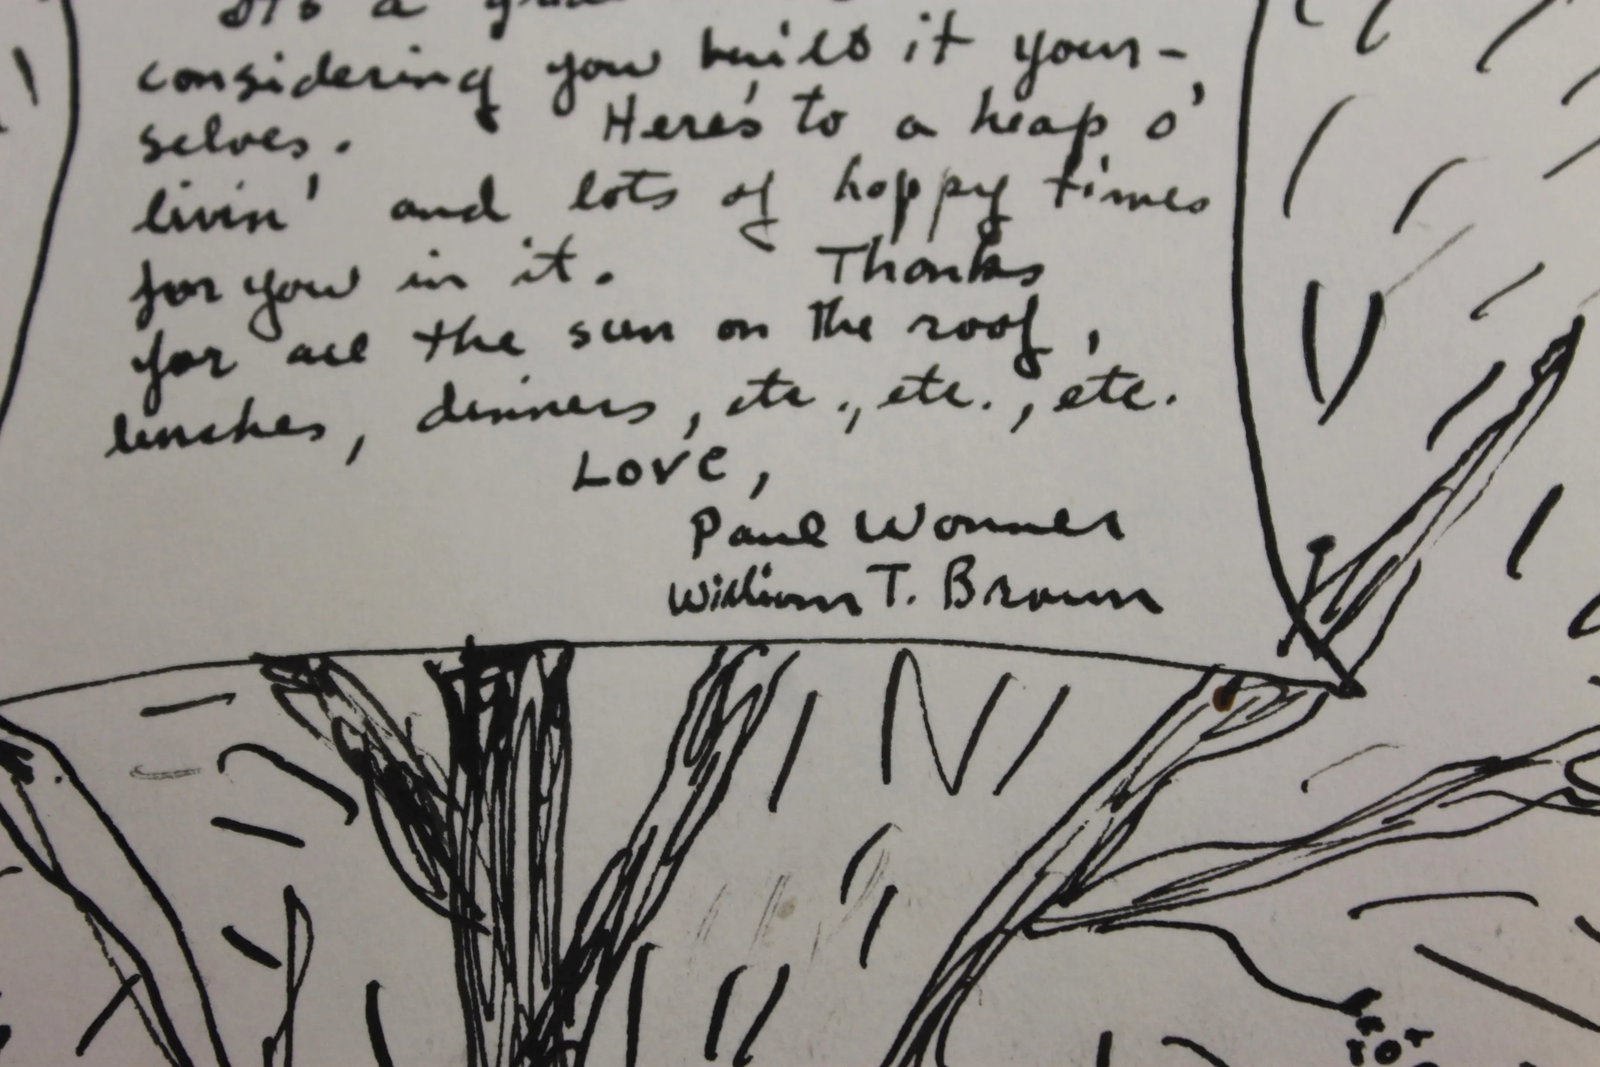 It's a
considering you built it your-
selves. Here's to a heap o'
livin' and lots of happy times
for you in it. Thanks
for all the sun on the roof,
lunches, dinners, etc., etc., etc.
Love,
Paul Wonner
William T. Brown